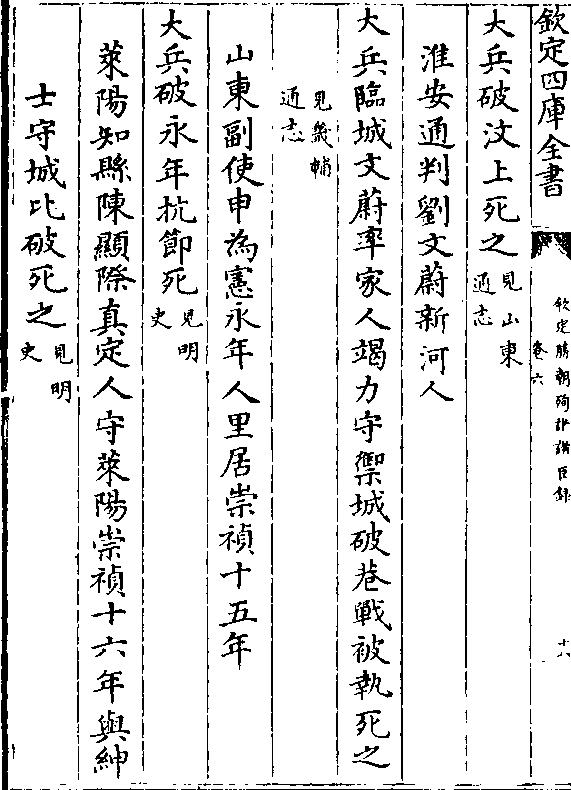 欽定四庫全書
欽定勝朝殉節諸臣録
卷六
十八
大兵破汶上死之見山東通志
淮安通判劉文蔚新河人
大兵臨城文蔚率家人竭力守禦城破巷戰被執死之
見畿輔通志
山東副使申為憲永年人里居崇禎十五年
大兵破永年抗節死見明史
萊陽知縣陳顯際真定人守萊陽崇禎十六年與紳
士守城比破死之見明史